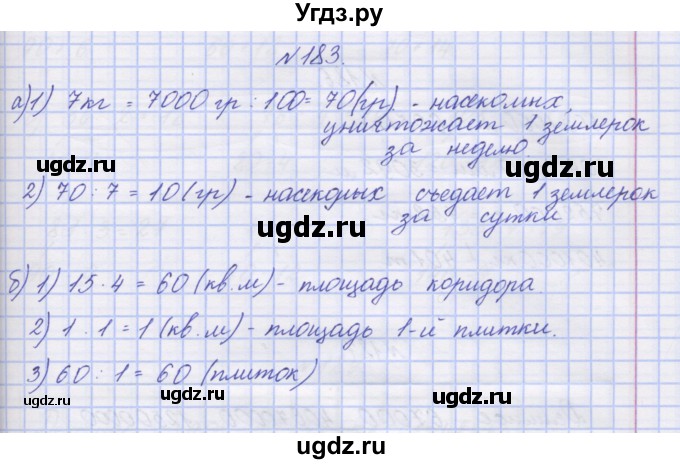 Угдз.ру
№183.
а)1) 7кг = 7000 гр : 100= 70(гр) - насекомых,
уничтожает 1 землерок
за неделю
ugdz.ru
ugdz.ru
2) 70 : 7 = 10 (гр) - насекомых съедает 1 землерок
за сутки
ugdz.ru
ugdz.ru
б) 1) 15 · 4 = 60 (кв.м) - площадь коридора
2) 1 · 1 = 1 (кв.м) - площадь 1-й плитки.
3) 60 : 1 = 60 (плиток)
ugdz.ru
ugdz.ru
ugdz.ru